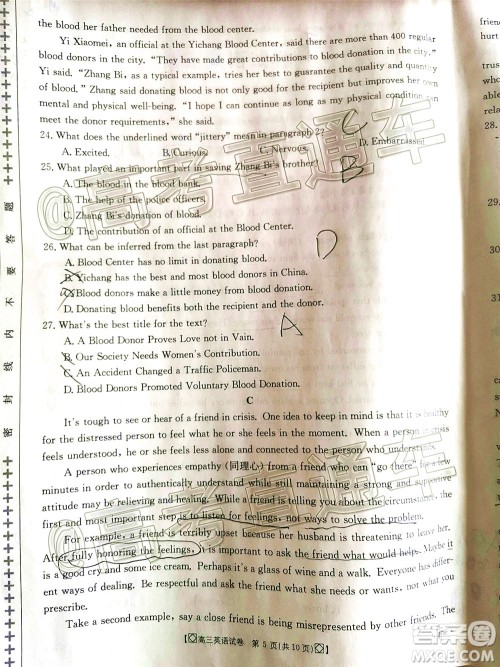 the blood her father needed from the blood center.
Yi Xiaomei, an official at the Yichang Blood Center, said there are more than 400 regular
blood donors in the city. "They have made great contributions to blood donation in the city,"
Yi said. "Zhang Bi, as a typical example, tries her best to guarantee the quality and quantity
of blood." Zhang said donating blood is not only good for the recipient but improves her own
mental and physical well-being. "I hope I can continue as long as my physical condition can
meet the donor requirements," she said.
24. What does the underlined word "jittery" mean in paragraph 2?
C
A. Excited. B. Curious. C. Nervous. D. Embarrassed.
25. What played an important part in saving Zhang Bi's brother?
B
A. The blood in the blood bank.
B. The help of the police officers.
C. Zhang Bi's donation of blood.
D. The contribution of an official at the Blood Center.
26. What can be inferred from the last paragraph?
D
A. Blood Center has no limit in donating blood.
B. Yichang has the best and most blood donors in China.
C. Blood donors make a little money from blood donation.
D. Donating blood benefits both the recipient and the donor.
27. What's the best title for the text?
A
A. A Blood Donor Proves Love not in Vain.
B. Our Society Needs Women's Contribution.
C. An Accident Changed a Traffic Policeman.
D. Blood Donors Promoted Voluntary Blood Donation.
C
It's tough to see or hear of a friend in crisis. One idea to keep in mind is that it is healthy
for the distressed person to feel what he or she feels in the moment. When a person in crisis
feels understood, he or she feels less alone and connected to the person who understands.
A person who experiences empathy (同理心) from a friend who can "go there" for a few
minutes in order to authentically understand while still maintaining a strong and supportive
attitude may be relieving and healing. While a friend is telling you about the circumstance, the
first and most important step is to listen for feelings, not ways to solve the problem.
For example, a friend is terribly upset because her husband is threatening to leave her.
After fully honoring the feelings, it is important to ask the friend what would help. Maybe it
is a good cry and some ice cream. Perhaps it's a glass of wine and a walk. Everyone has differ-
ent ways of dealing. Be respectful and ask the friend what he or she needs but do not
prescribe.
Take a second example, say a close friend is being misrepresented by other friends. The
高三英语试卷 第 5 页(共 10 页)
密 封 线 内 不 要 答 题
@高考直通车
@高考直通车
friend
hurt
trus
mo
28.
29.
30
31